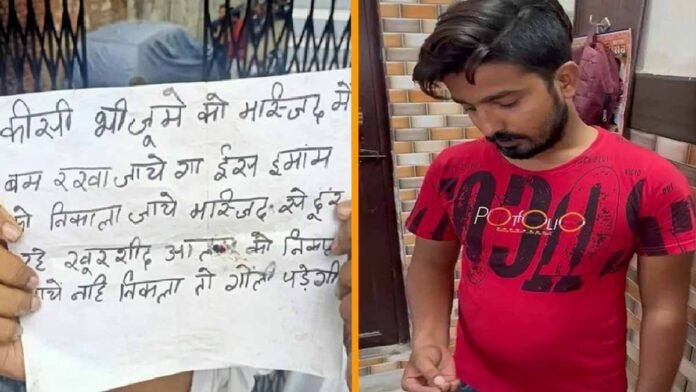 कीसी भी जूमे को मस्जिद में
बम रखा जाये गा ईस इमांम
को निकाला जाये मस्जिद से दूर
रहे खूरशीद को
नहि निकला तो गोली पड़ेगी
POTFOLIO